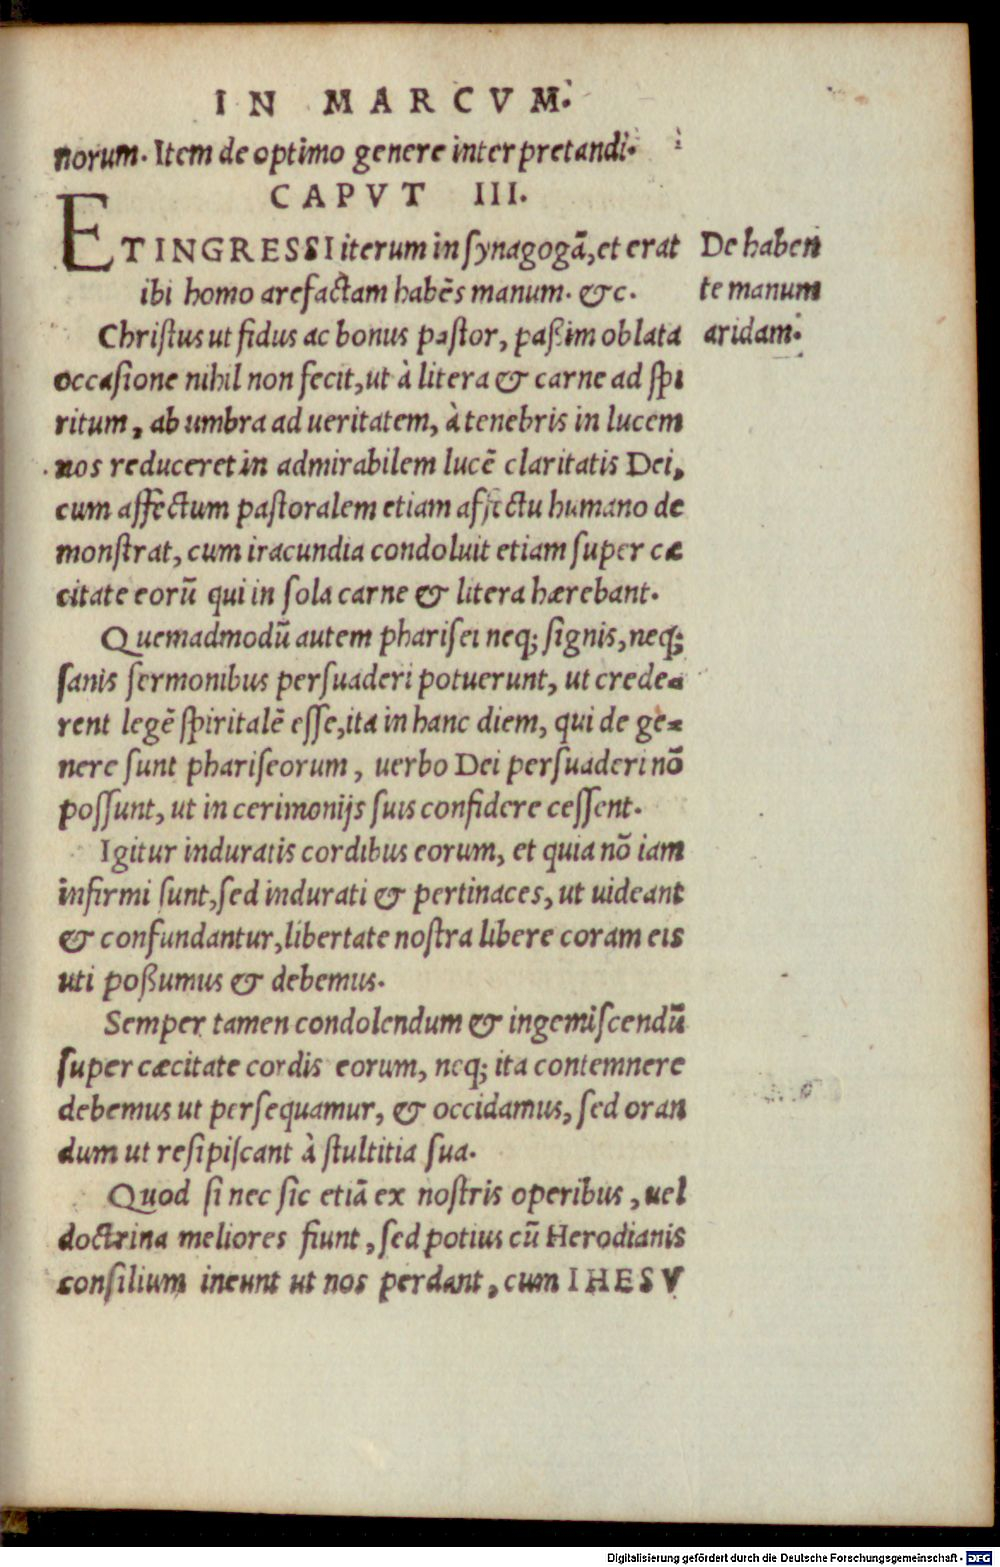 IN MARCVM.
norum. Item de optimo genere interpretandi.
CAPVT III.
ET INGRESSI iterum in ſynagogã, et erat
ibi homo arefactam habẽs manum. &c.
De haben
te manum
aridam.
Chriſtus ut fidus ac bonus paſtor, paßim oblata
occaſione nihil non fecit, ut à litera & carne ad ſpi
ritum, ab umbra ad ueritatem, à tenebris in lucem
nos reduceret in admirabilem lucẽ claritatis Dei,
cum affectum paſtoralem etiam affectu humano de
monſtrat, cum iracundia condoluit etiam ſuper cæ
citate eorũ qui in ſola carne & litera hærebant.
Quemadmodũ autem phariſei neq; ſignis, neq;
ſanis ſermonibus perſuaderi potuerunt, ut crede=
rent legẽ ſpiritalẽ eſſe, ita in hanc diem, qui de ge=
nere ſunt phariſeorum, uerbo Dei perſuaderi nõ
poſſunt, ut in cerimonijs ſuis confidere ceſſent.
Igitur induratis cordibus eorum, et quia nõ iam
infirmi ſunt, ſed indurati & pertinaces, ut uideant
& confundantur, libertate noſtra libere coram eis
uti poßumus & debemus.
Semper tamen condolendum & ingemiſcendũ
ſuper cæcitate cordis eorum, neq; ita contemnere
debemus ut perſequamur, & occidamus, ſed oran
dum ut reſipiſcant à ſtultitia ſua.
Quod ſi nec ſic etiã ex noſtris operibus, uel
doctrina meliores fiunt, ſed potius cũ Herodianis
conſilium ineunt ut nos perdant, cum IHESV
Digitalisierung gefördert durch die Deutsche Forschungsgemeinschaft - DFG